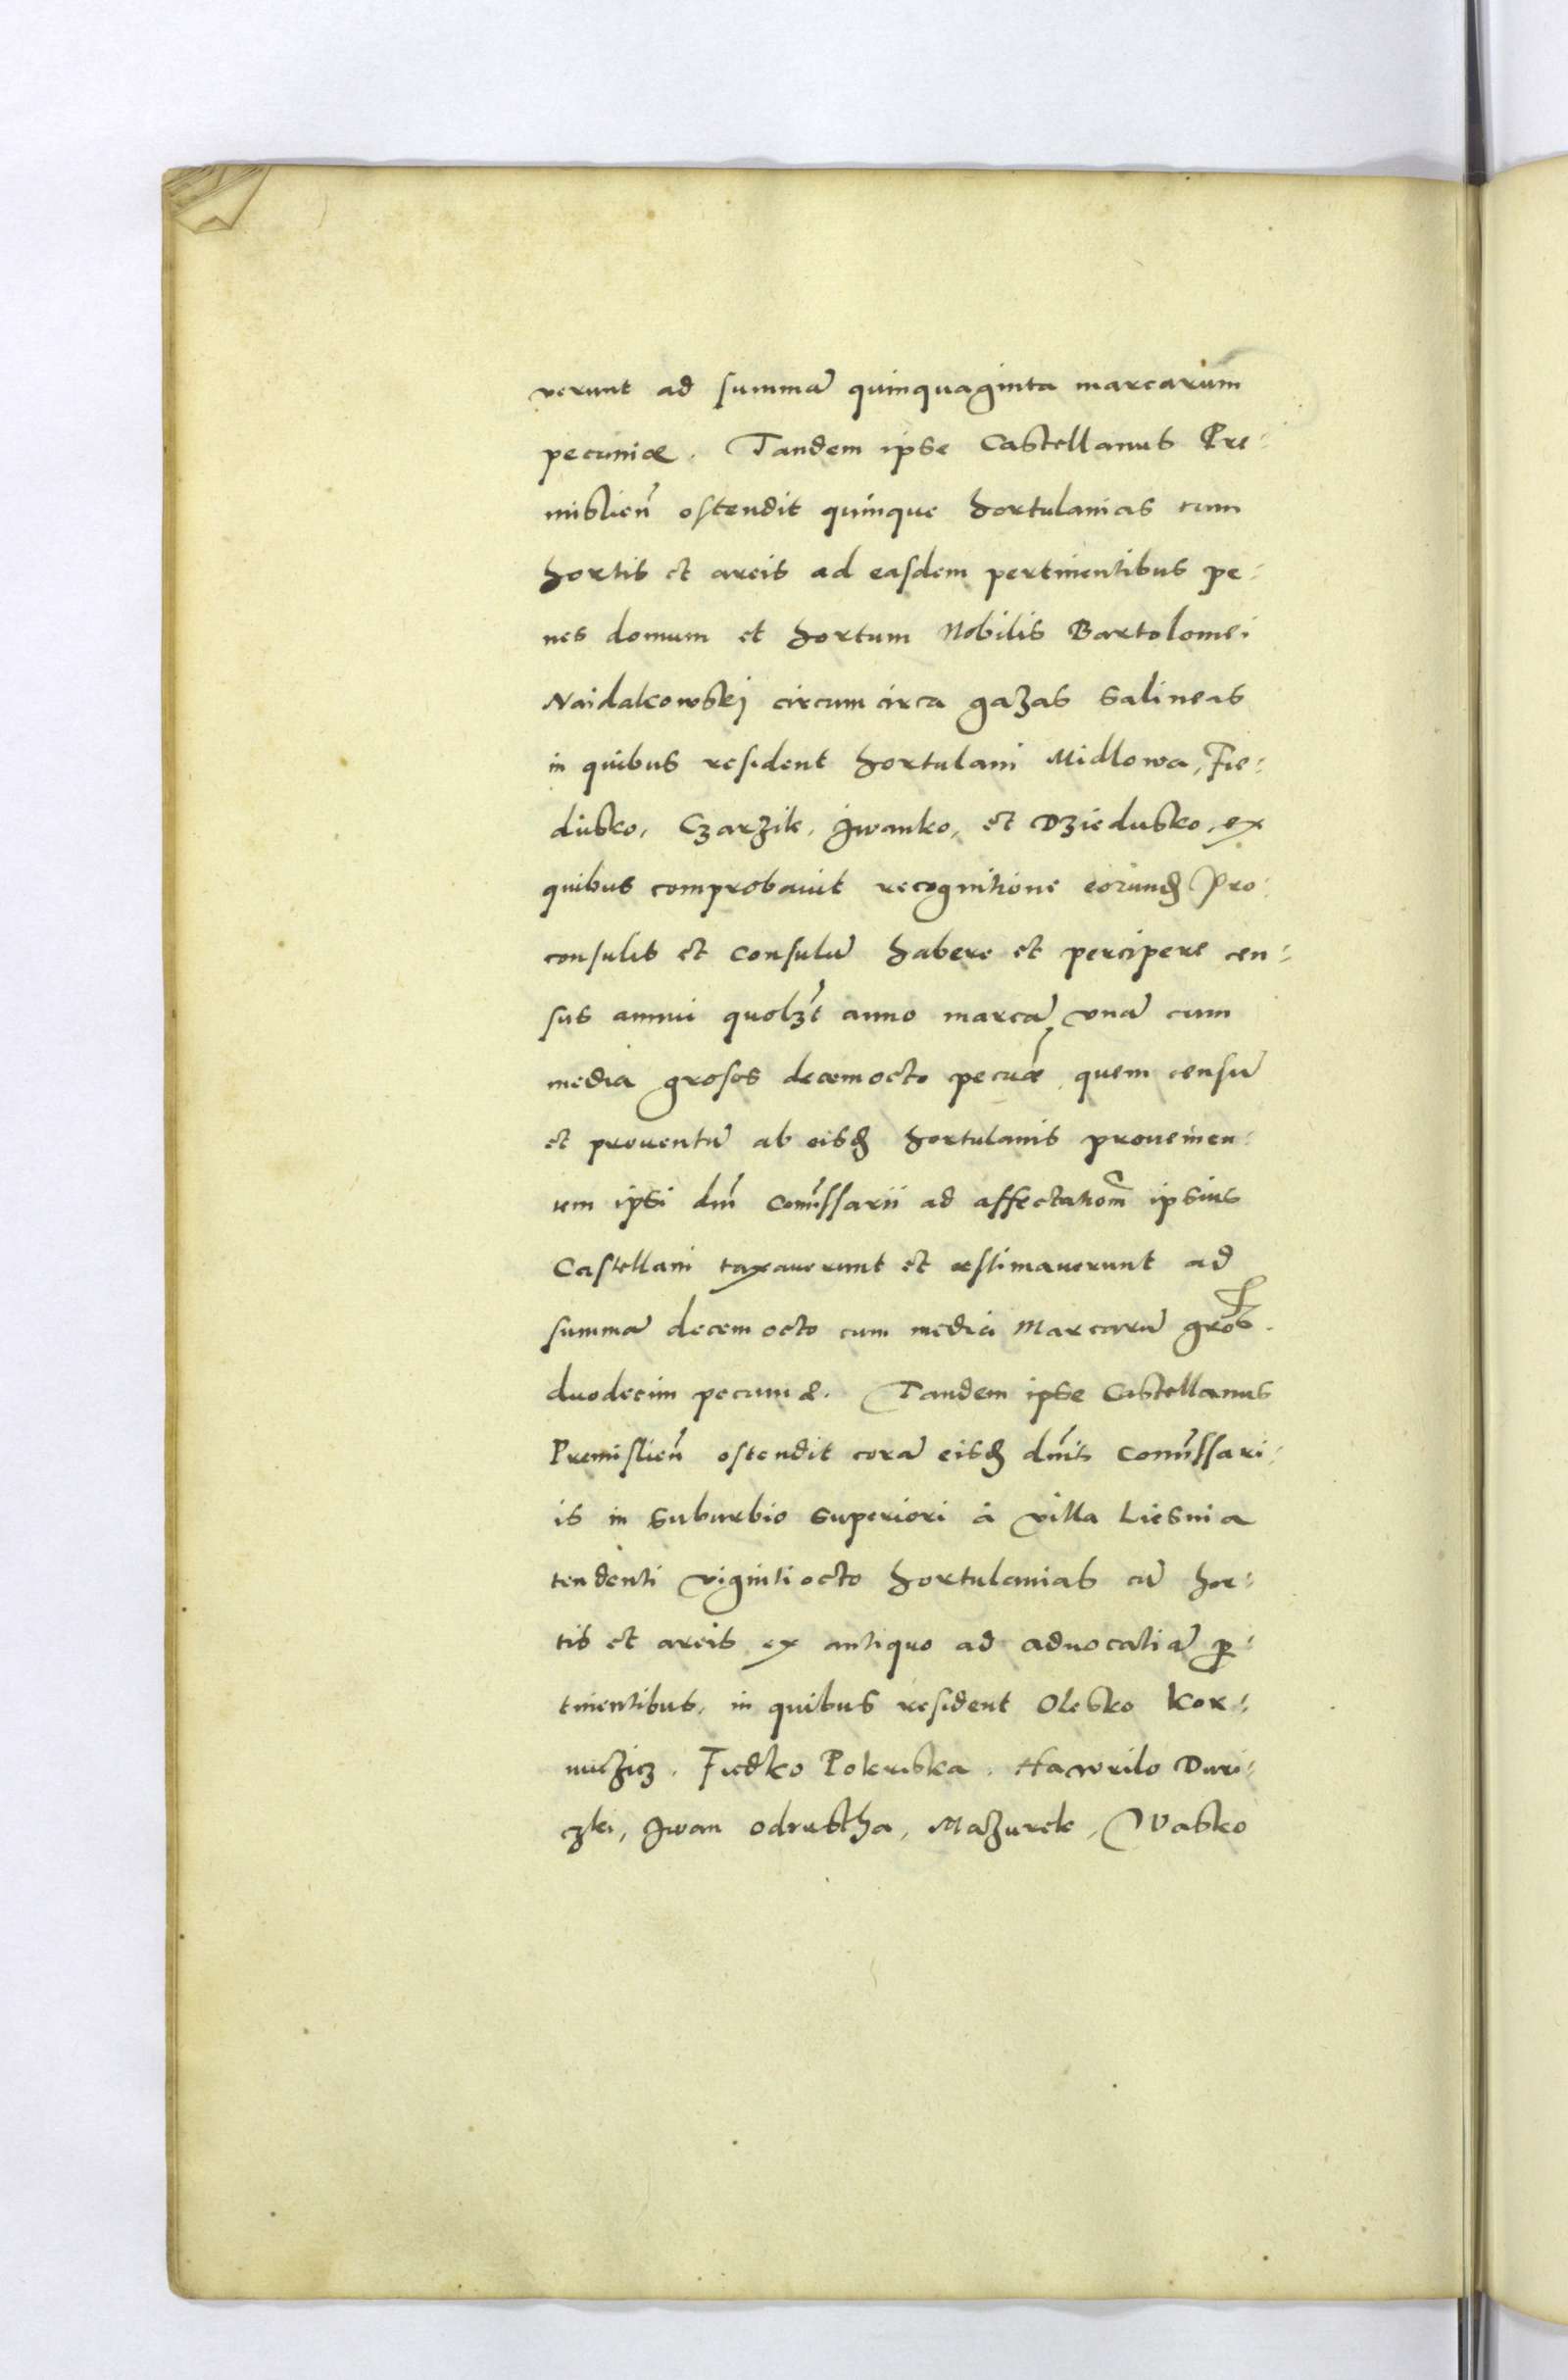 verunt ad summa͂ quinquaginta marcarum
pecuniæ. Tandem ipse Castellanus Pre:
mislien͂ ostendit quinque hortulanias cum
hortis et areis ad easdem pertinentibus pe:
nes domum et hortum Nobilis Bartolomei
Naidalkowskij circumcirca gazas salineas
in quibus resident hortulani Midlowa, Fie:
dusko, Czarzik, Jwanko, et Dziedusko, ex
quibus comprobauit recognitione eorundꝫ Pro:
consulis et Consulu͂ habere et percipere cen:
sus annui quolꝫt anno marca͂ vna͂ cum
media grosos decemocto pecuæ͂, quem censu͂
et prouentu͂ ab eisdꝫ hortulanis prouenien:
tem ipsi dni͂ Com͂issarii ad affectatiom͂ ipsius
Castellani taxauerunt et æstimauerunt ad
summa͂ decemocto cum media Marcaru͂ gros͂.
duodecim pecuniæ. Tandem ipse Castellanus
Premislien͂ ostendit cora͂ eisdꝫ dn͂is Com͂issari:
is in suburbio superiori à villa Liesnia
tendenti vigintiocto hortulanias cu͂ hor:
tis et areis ex antiquo ad aduocatia͂ ꝑ:
tinentibus, in quibus resident Olesko Kor:
niczicz. Fiedko Pokriska. Hawrilo Duri:
czki, Jwan Odrustha, Mazurek, Wasko